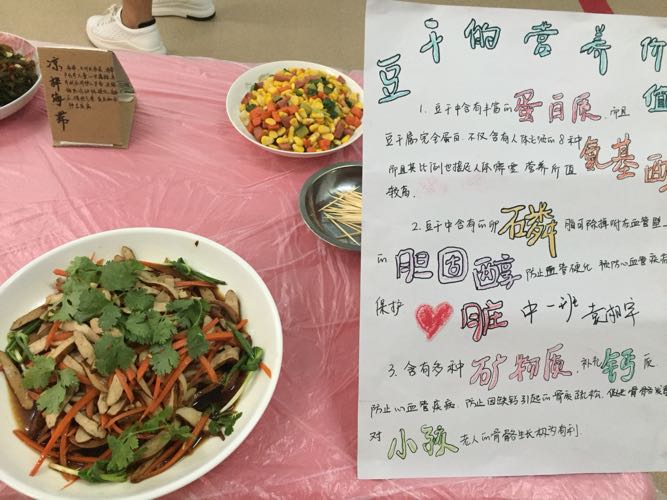 凉拌海带
豆干的营养价值
1. 豆干中含有丰富的蛋白质,而且
豆干属完全蛋白,不仅含有人体必需的8种氨基酸
而且其比例也接近人体需要,营养价值
较高.
2. 豆干中含有的卵石磷脂可除掉附在血管壁上
的胆固醇防止血管硬化 预防心血管疾病
保护 脏 中一班
3. 含有多种矿物质,补充钙质
防止心血管疾病,防止因缺钙引起的骨质疏松,促进骨骼发育
对小孩老人的骨骼生长极为有利.